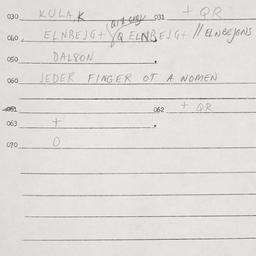 030 KULA,K 031 + QR
040 ELNBEJG+ Q ELNBEJG+ // ELNBEJGNS
050 DALSON
060 JEDER FINGER OT A NOMEN
061 062 + QR
063 +
070 O